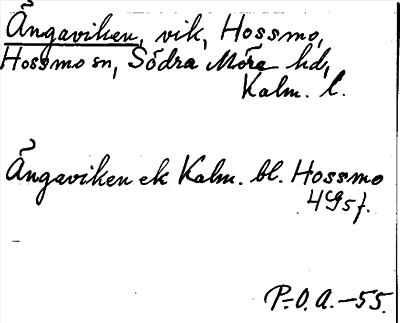 Ängaviken, vik, Hossmo,
Hossmo sn, Södra Möre hd,
Kalm. l.
Ängaviken ek Kalm. bl. Hossmo
4G5f.
P.-O. A. -55.